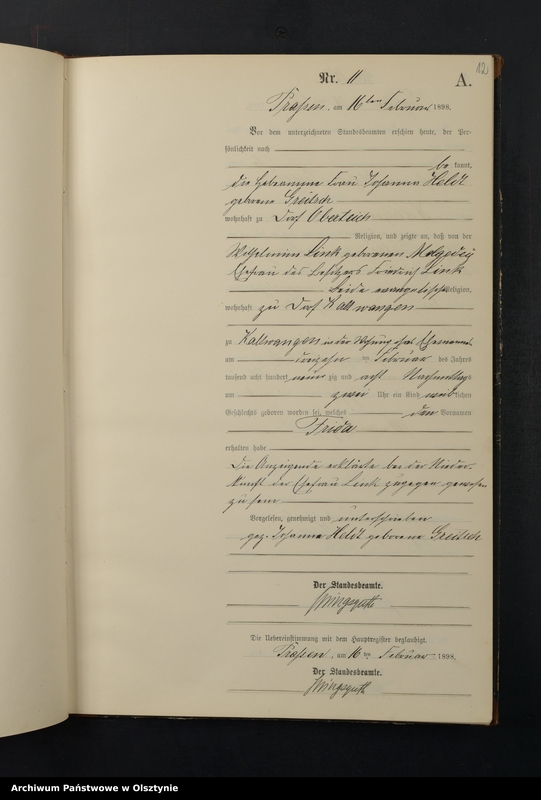 12
Nr. 11
A.
am 16ten Februar 1898.
Vor dem unterzeichneten Standesbeamten erschien heute, der Per-
sönlichkeit nach
be kannt,
die Hebeamme Frau Johanna Heldt
geborene Greitsch
wohnhaft zu Dorf Oberteich
Religion, und zeigte an, daß von der
Wilhelmine Link geborenen
Ehefrau des Besitzers Friedrich Link
beide evangelischer Religion,
wohnhaft zu Dorf Kallwangen
zu Kallwangen in der Wohnung ihres Ehemannes
am dreizehn ten Februar des Jahres
tausend acht hundert neun zig und acht Nachmittags
um zwei Uhr ein Kind weiblichen
Geschlechts geboren worden sei, welches den Vornamen
Frida
erhalten habe
Die Anzeigende erklärte bei der Nieder-
kunft der Ehefrau Link zugegen gewesen
zu sein
Vorgelesen, genehmigt und unterschrieben
gez. Johanna Heldt geborene Greitsch
Der Standesbeamte.
Die Uebereinstimmung mit dem Hauptregister beglaubigt.
am 16ten Februar 1898.
Der Standesbeamte.
Archiwum Państwowe w Olsztynie